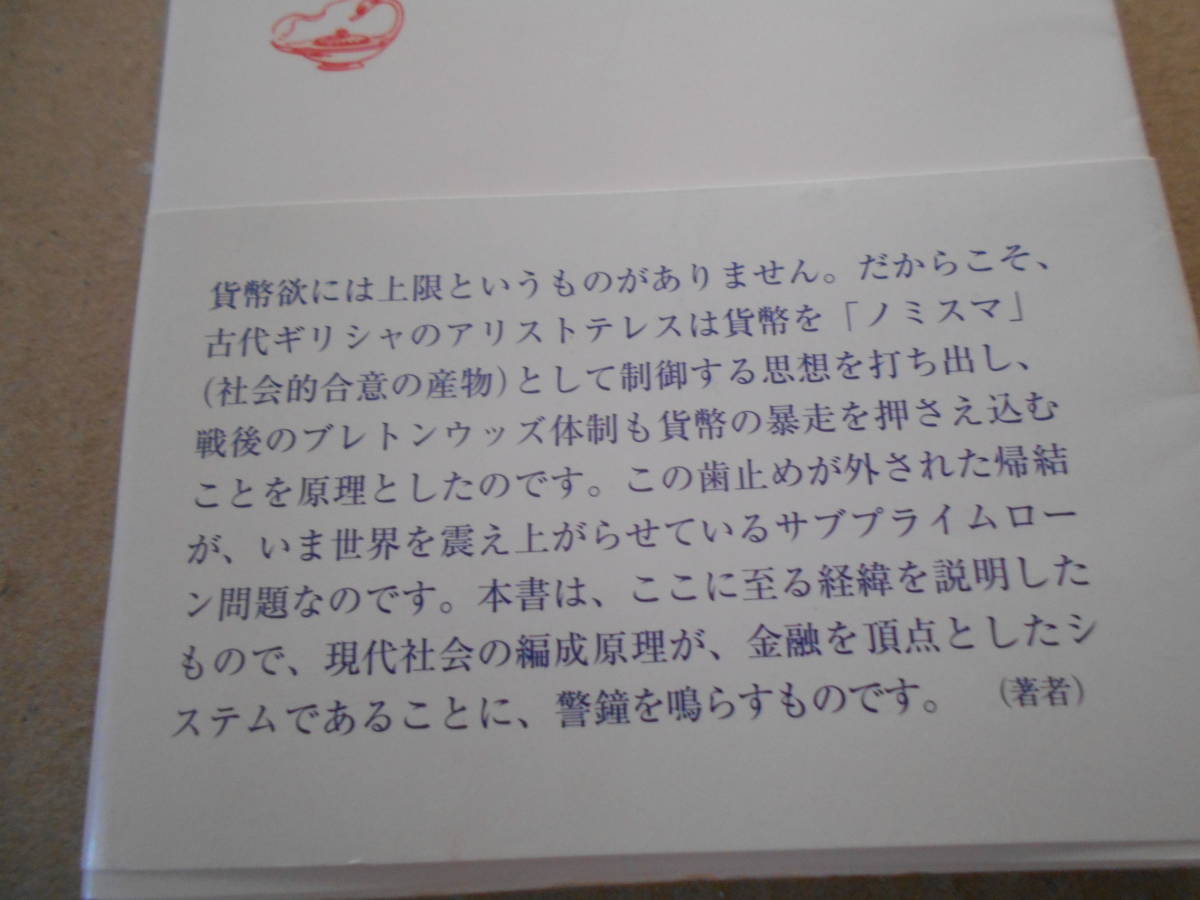 貨幣欲には上限というものがありません。だからこそ、
古代ギリシャのアリストテレスは貨幣を「ノミスマ」
(社会的合意の産物)として制御する思想を打ち出し、
戦後のブレトンウッズ体制も貨幣の暴走を押さえ込む
ことを原理としたのです。この歯止めが外された帰結
が、いま世界を震え上がらせているサブプライムロー
ン問題なのです。本書は、ここに至る経緯を説明した
もので、現代社会の編成原理が、金融を頂点としたシ
ステムであることに、警鐘を鳴らすものです。 (著者)